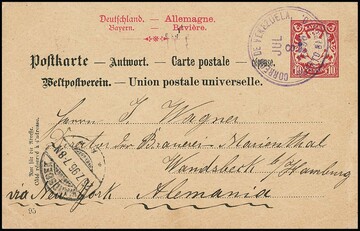 Deutschland. — Allemagne.
Bayern. — Bavière.
Postkarte — Antwort. — Carte postale — Réponse.
Weltpostverein. — Union postale universelle.
CORREOS DE VENEZUELA
JUL
10
Herrn J. Wagner
Director der Brauerei Marienthal
Wandsbeck b/Hamburg
via New York Alemania
Nur für die Adresse.
Côté réservé à l'adresse.
7.96.7-8N
95